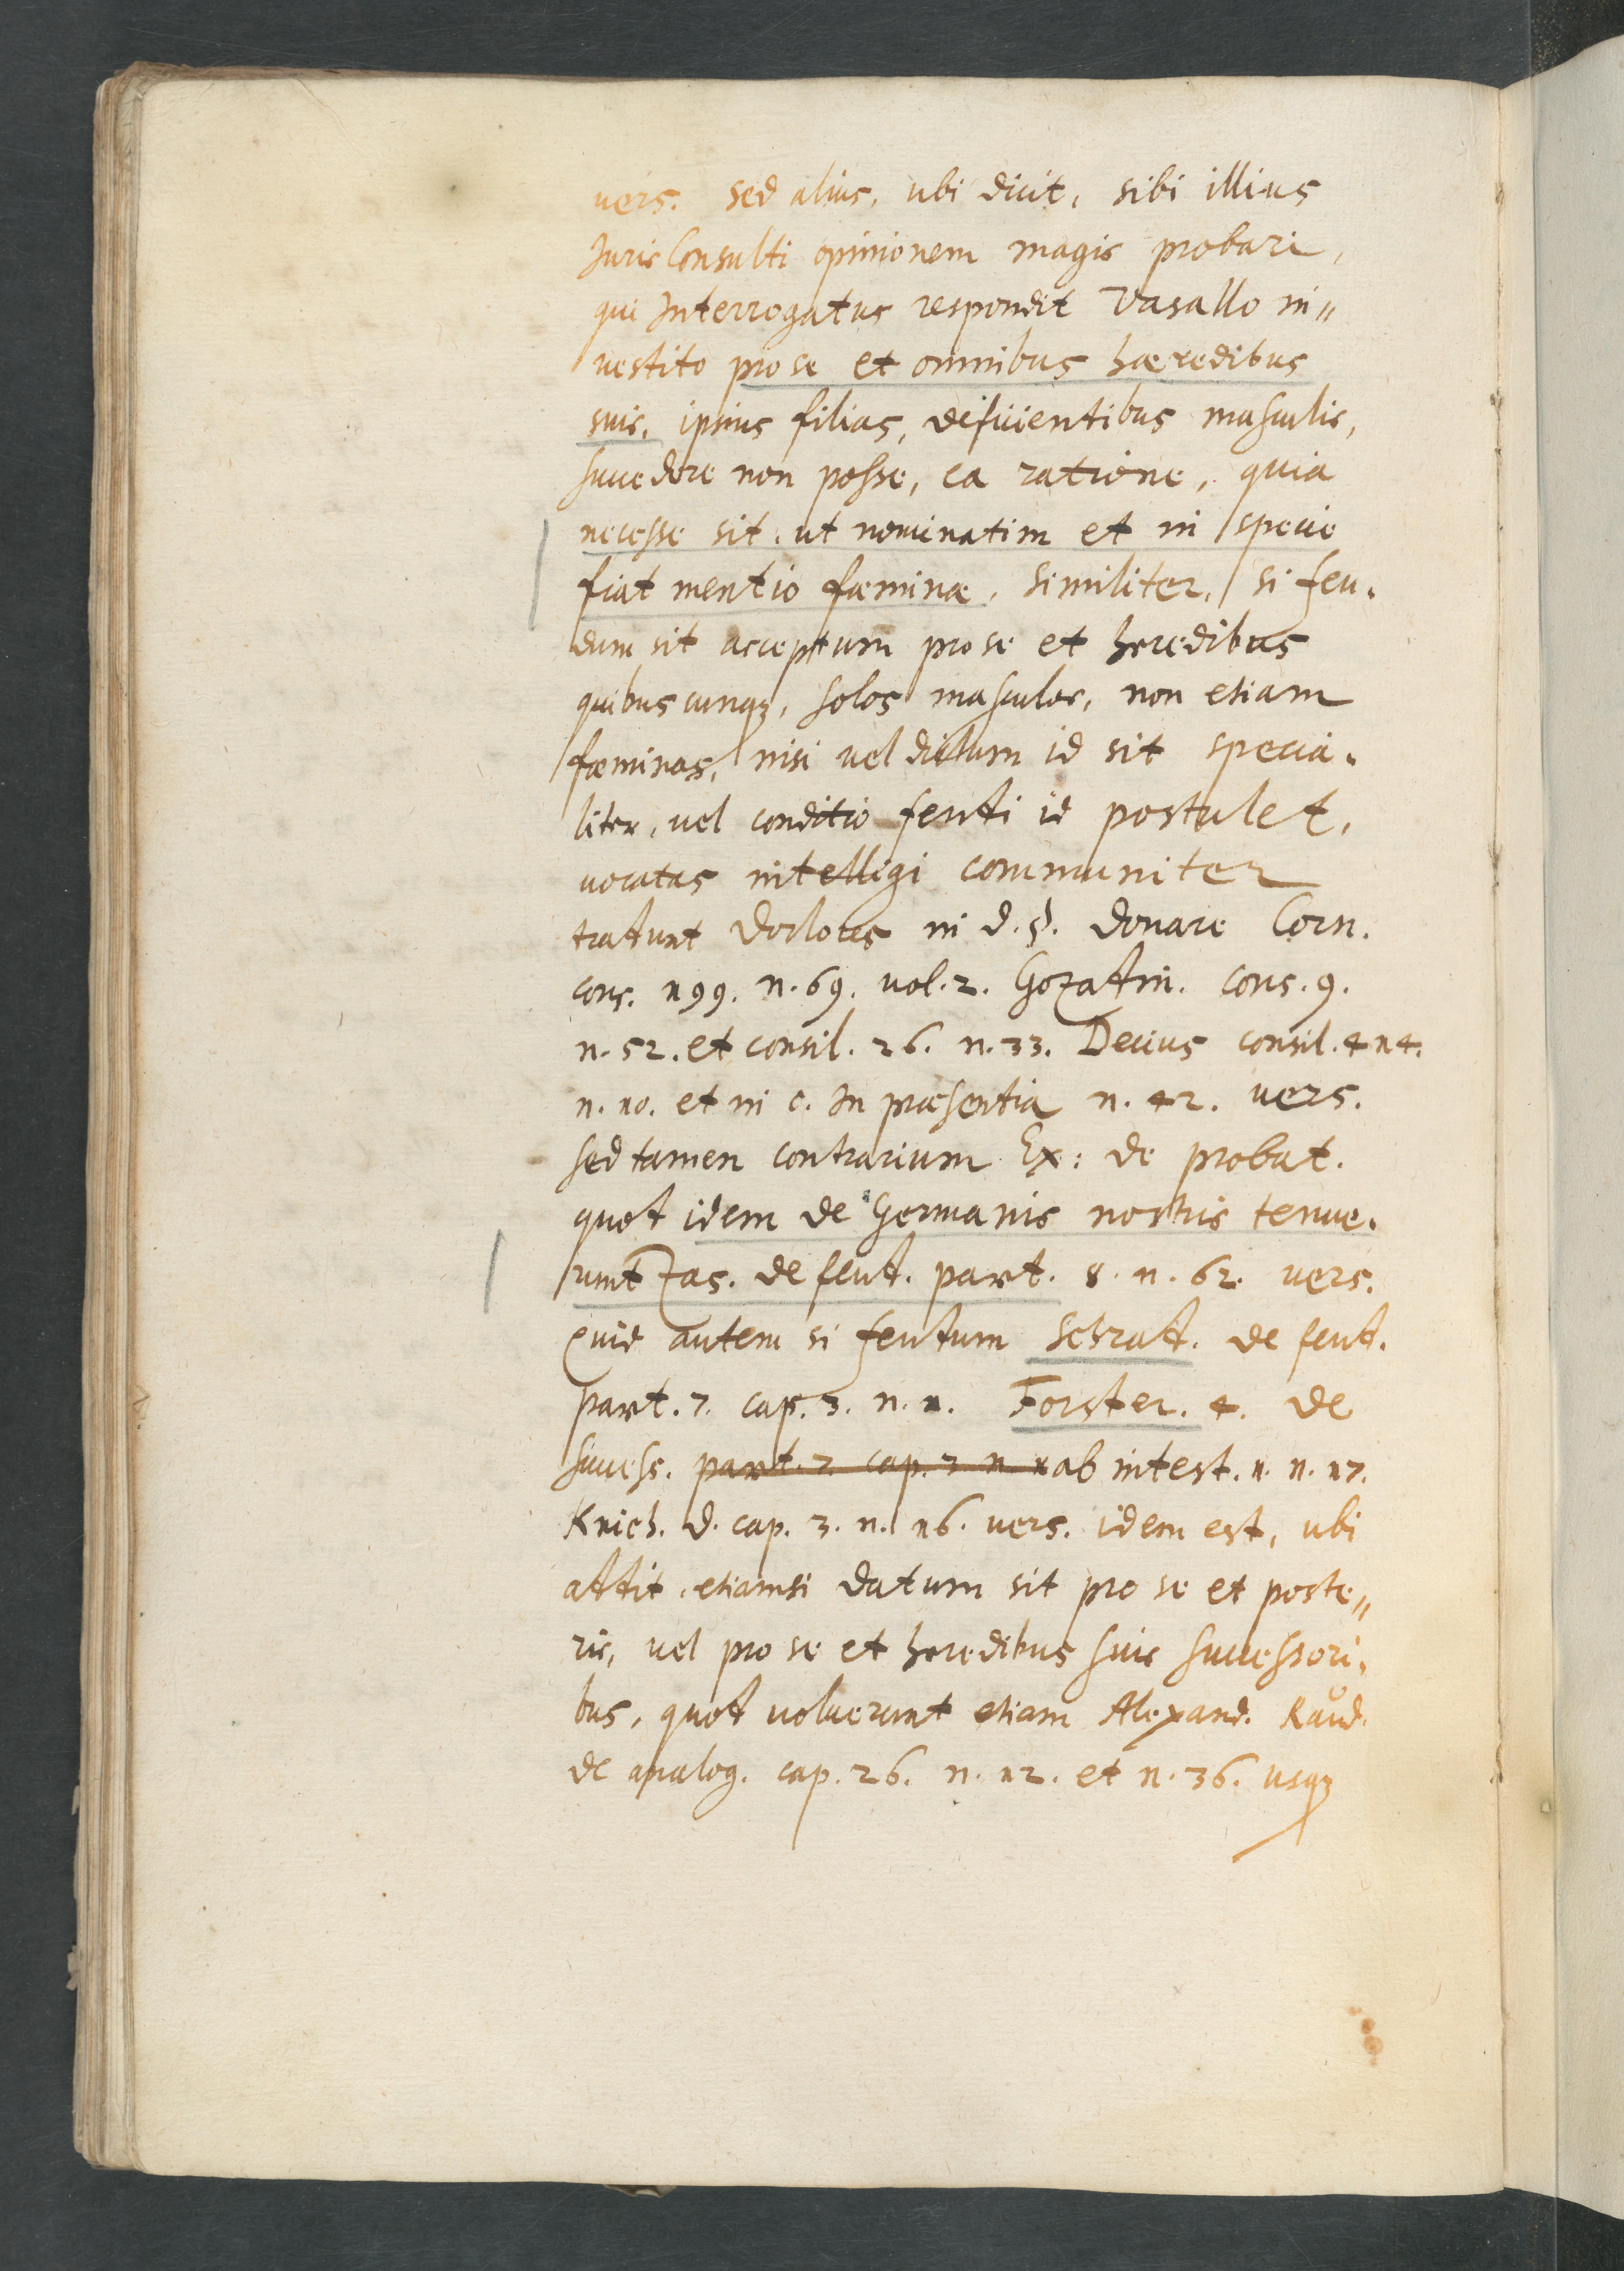 vers. sed alius, ubi dicit, sibi illius
JurisConsulti opinionem magis probari,
qui Interrogatus respondit Vasallo in„
vestito pro se et omnibus hæredibus
suis, ipsius filias, deficientibus masculis,
succedere non posse, ea ratione, quia
necesse sit, ut nominatim et in specie
fiat mentio fæminæ, similiter, si feu.
dum sit acceptum pro se et heredibus
quibuscunqꝫ, solos masculos, non etiam
fæminas, nisi vel dictum id sit specia.
liter, vel conditio feudi id postulet,
vocatas intelligi communiter
tradunt Doctores in d. §. donare Corn.
cons. 199. n. 69. vol. 2. Gozadin. cons. 9.
n. 52. et consil. 26. n. 33. Decius consil. 414.
n. 10. et in c. In præsentia n. 42. vers.
sed tamen contrarium Ex: de probat.
quod idem de Germanis nostris tenue.
runt Zas. de feud. part. 8. n. 62. vers.
Quid autem si feudum Schrad. de feud.
part. 7. cap. 3. n. 1. Forster. 4. de
success. part. 7. cap. 3 n. 1 ab intest. 1. n. 17.
Knich. d. cap. 3. n. 16. vers. idem est, ubi
addit, etiamsi datum sit pro se et poste„
ris, vel pro se et heredibus suis successori.
bus, quod voluerunt etiam Alexand. Raud.
de analog. cap. 26. n. 12. et n. 36. usqꝫ